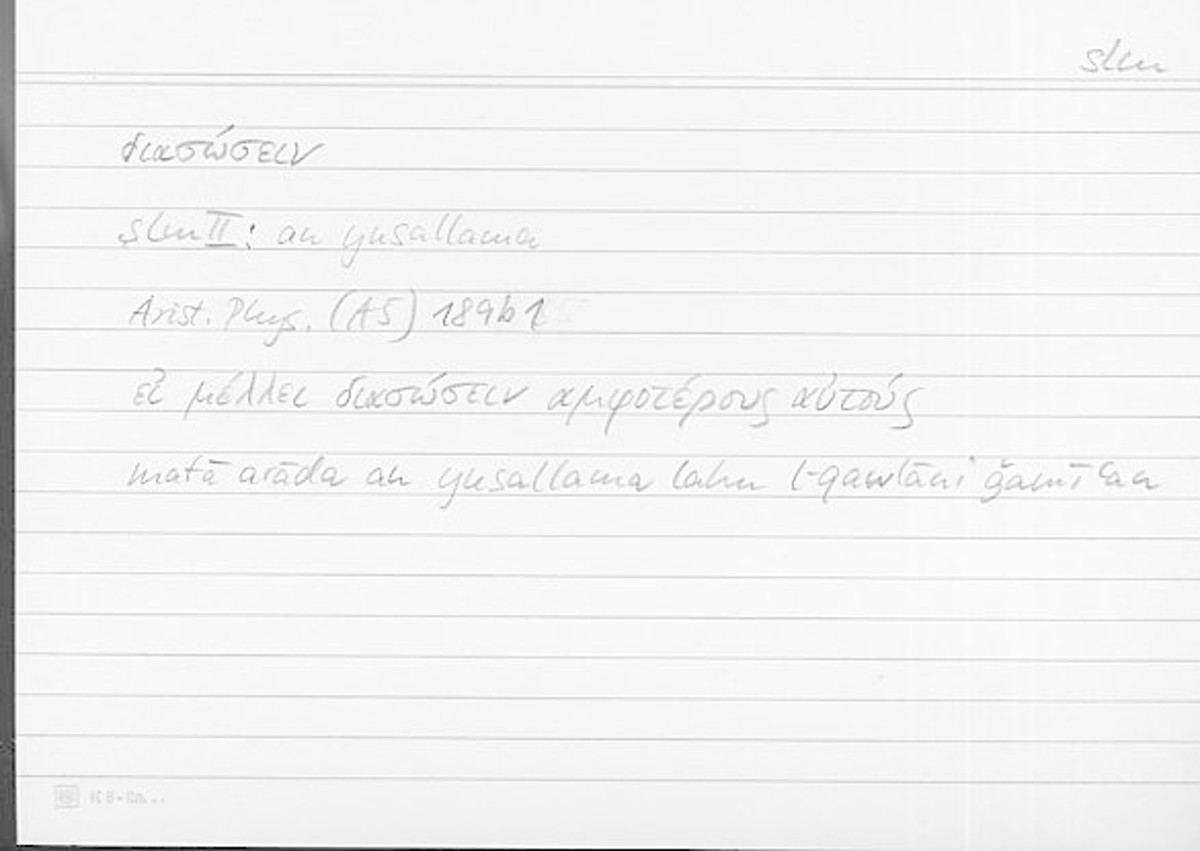 slm
διασώσειν
slm II: an yusallama
Arist. Phys. (A5) 189b1
εἰ μέλλει διασώσειν αμφοτέρους αὐτούς
matā arāda an yusallama lahu l-qawlāni ǧamīʿan